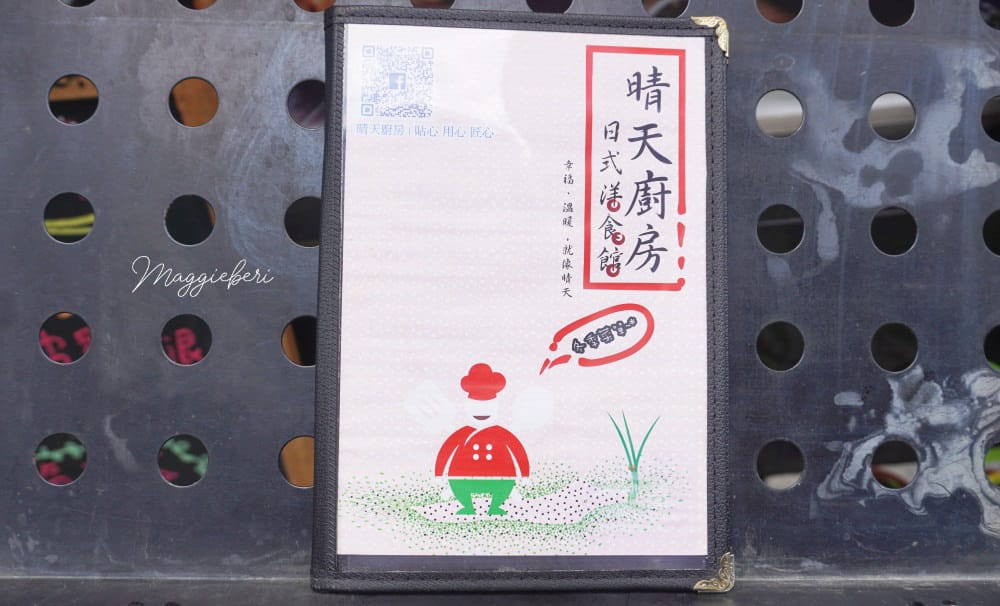 晴天廚房
日式洋食館
幸福.溫暖,就像晴天
晴天廚房|貼心 用心 匠心
冬季菜單
Maggieberi